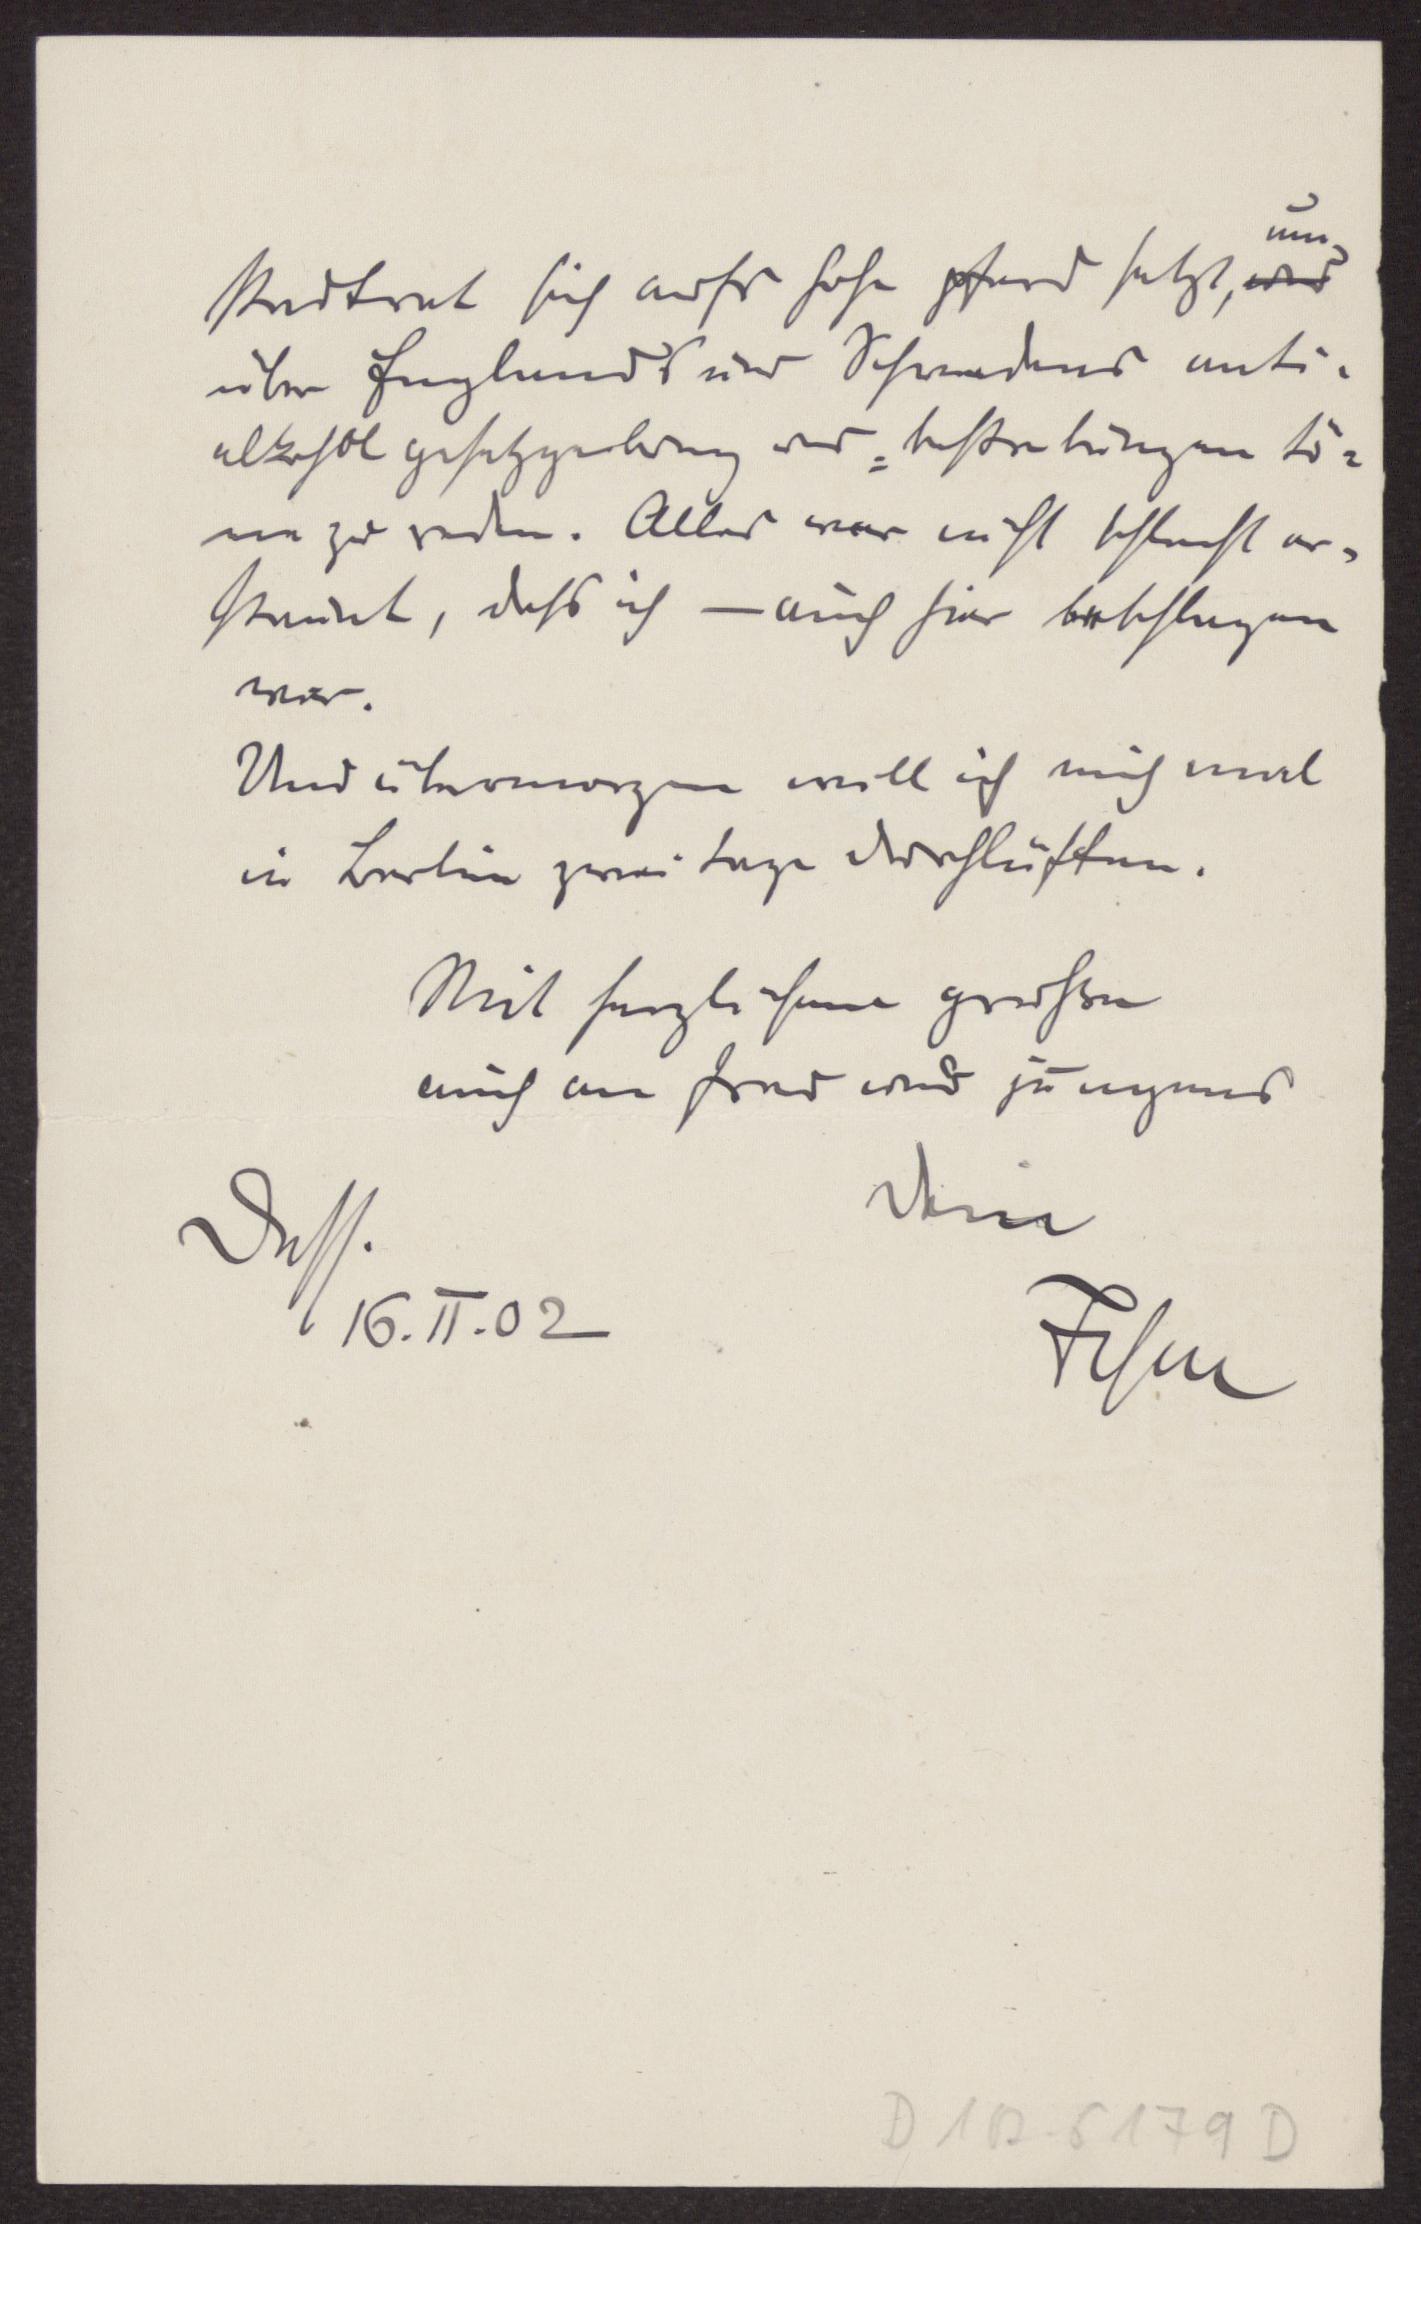 um
stadtrat sich aufs hohe pferd setzt, und
über England's und Schwedens anti-
alkohol gesetzgebung und =bestrebungen tö-
ne zu reden. Alles war nicht schlecht er-
staunt, dass ich — auch hier beschlagen
war.
Und übermorgen will ich mich mal
in Berlin zwei tage durchlüften.
Mit herzlichen grüssen
auch an frau und jungens
Dein
Dess.
16.II.02
D 182-5179 D